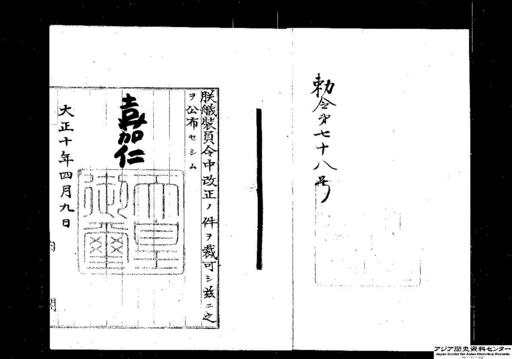 勅令第七十八号
朕織装員令中改正ノ件ヲ裁可シ茲ニ之
ヲ公布セシム
嘉仁
天皇御璽
大正十年四月九日
内閣
アジア歴史資料センター
Japan Center for Asian Historical Records